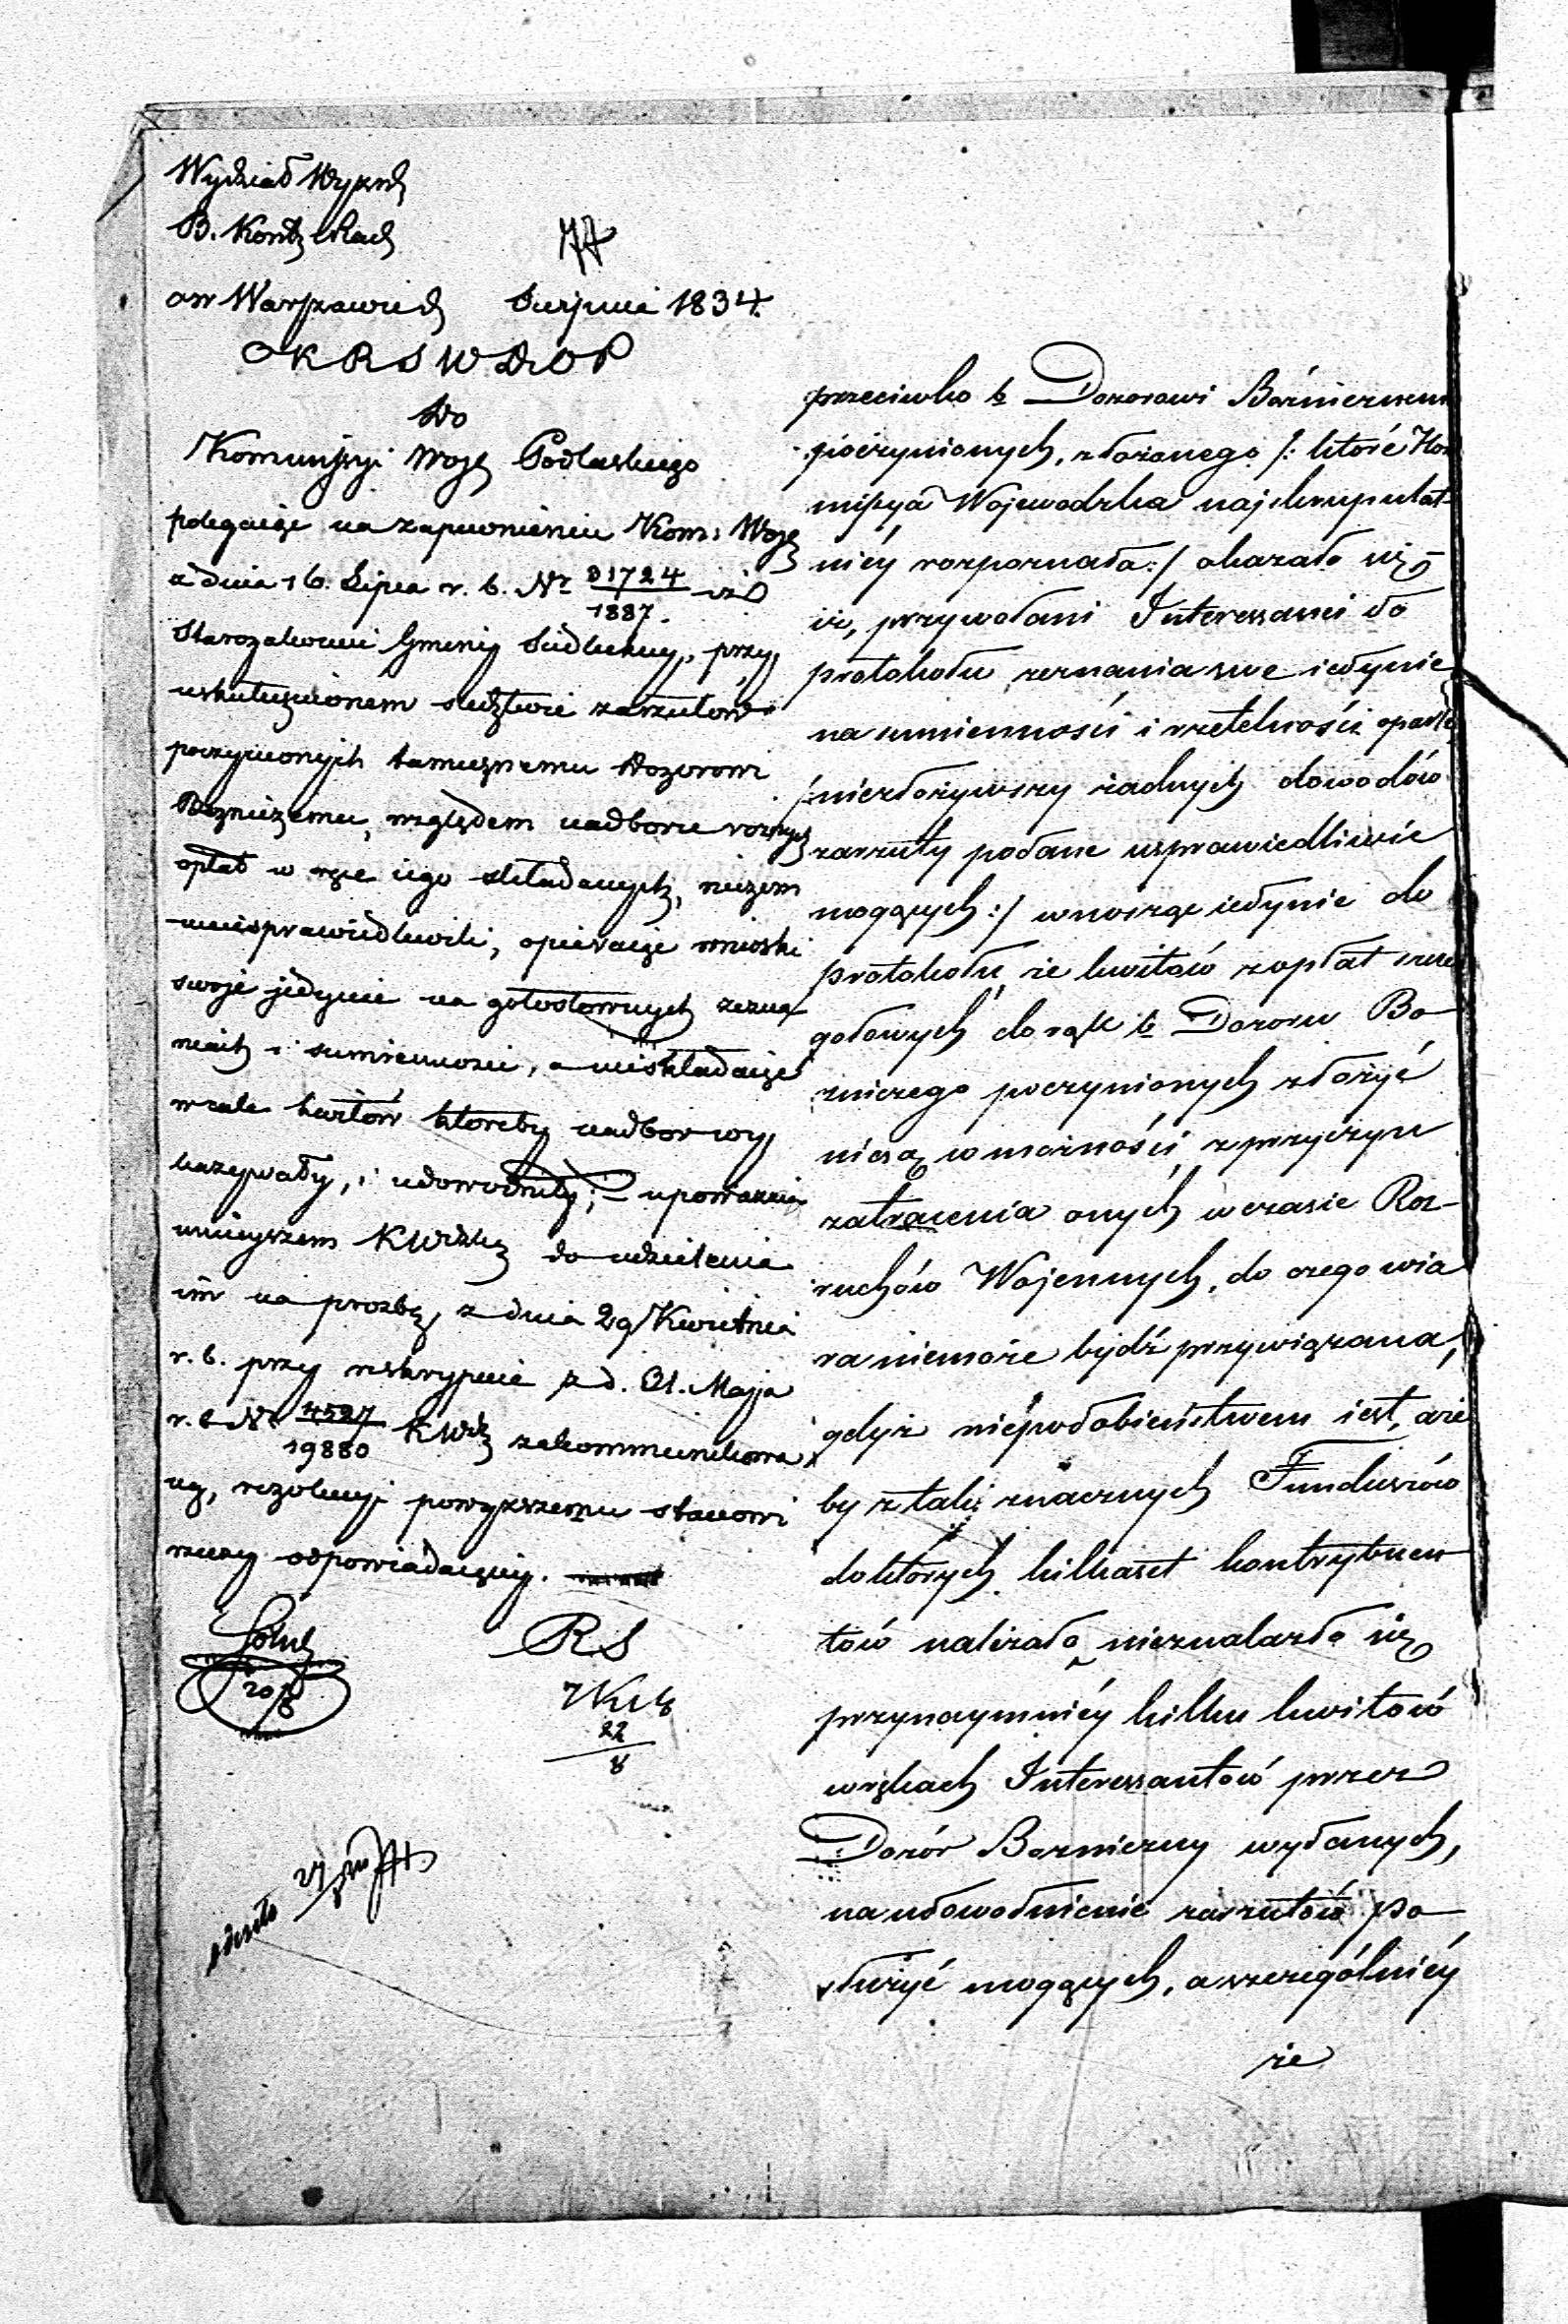 Wydział Wyzn
B. Kontr. Rach
w Warszawie d Sierpnia 1834.
K R S W D i O P
Do
Kommissyi Woje Podlaskiego
polegaiąc na zapewnieniu Kom: Woje
z dnia 16. Lipca r. b. Nr 31724/1887. iż
Starozakonni Gminy Siedleckiey, przy
uskutecznionem śledztwie zarzutów
poczynionych tamecznemu Dozorowi
Bozniczemu, względem nadboru roznych
opłat w ręce iego składanych, niczem
nieusprawiedliwili, opieraiąc wnioski
swoje jedynie na gołosłownych zezna
niach i sumienności, a nieskładaiąc
wcale kwitów któreby nadbor wy
kazywały, i udowodniły; upoważnia
ninieyszem KWdzką do udzielenia
im na prozbę, z dnia 29 Kwietnia
r. b. przy reskrypcie z d. 21. Maja
r. b Nr 4527/19880 KWdz zakommunikowa
ną, rezolucyi powyższemu stanowi
rzeczy odpowiadaiącey.
RS
20/8
22/8
27/8
przeciwko t. Dozorowi Bóźniczemu
poczynionych, złożonego /: któré Kom
missya Wojewodzka najskrupulat-
niéy rozpoznała :/ okazało się
iż, przywołani Interessanci do
protokołu zeznania swe iedynie
na sumienności i rzetelności oparli
/:niezłożywszy żadnych dowodów
zarzuty podane usprawiedliwić
mogących:/ wnosząc iedynie do
protokołu, że kwitów z opłat szcze
gołowych do rąk t. Dozoru Bo-
zniczego poczynionych złożyć
niesą w możności, z przyczyn
zatracenia onych w czasie Roz-
ruchów Wojennych, do czego wia
ra niemoże bydź przywiązana,
gdyż niepodobieństwem iest, aże
by z takiż znacznych Funduszów
do których kilkaset kontrybuen
tów należało, nieznalazło się
przynaymniéy kilku kwitów
w rękach Interessantów przez
Dozór Bozniczny wydanych,
na udowodnienie zarzutów po
służyć mogących, a szczególniéy
że